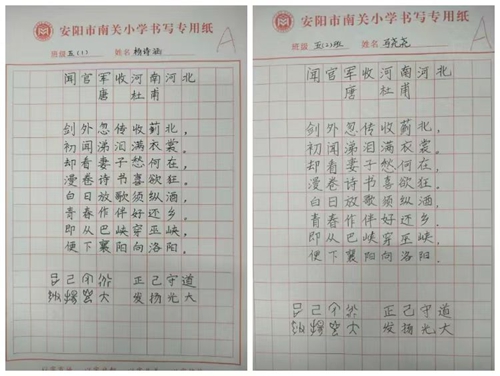 安阳市南关小学书写专用纸
A
班级 五(1) 姓名 杨诗涵
闻官军收河南河北
唐 杜甫
剑外忽传收蓟北，
初闻涕泪满衣裳。
却看妻子愁何在，
漫卷诗书喜欲狂。
白日放歌须纵酒，
青春作伴好还乡。
即从巴峡穿巫峡，
便下襄阳向洛阳。
正己守道
发扬光大
安阳市南关小学书写专用纸
A
班级 五(2)班 姓名
闻官军收河南河北
唐 杜甫
剑外忽传收蓟北，
初闻涕泪满衣裳。
却看妻子愁何在，
漫卷诗书喜欲狂。
白日放歌须纵酒，
青春作伴好还乡。
即从巴峡穿巫峡，
便下襄阳向洛阳。
正己守道
发扬光大